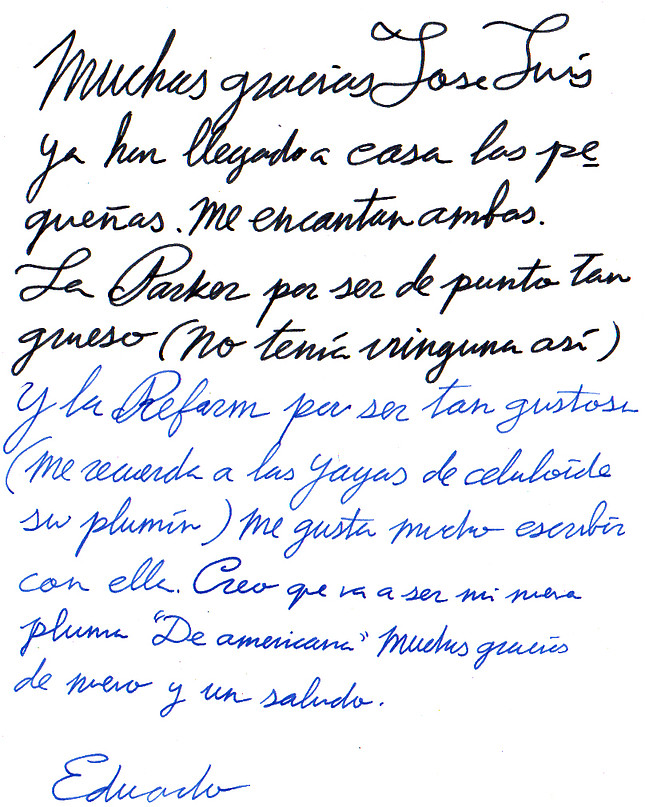 Muchas gracias Jose Luis
ya han llegado a casa las pe
queñas. Me encantan ambas.
La Parker por ser de punto tan
grueso (No tenía ninguna así)
Y la Reform por ser tan gustosa
(me recuerda a las Yayas de celuloide
su plumín) Me gusta mucho escribir
con ella. Creo que va a ser mi nueva
pluma "De americana" Muchas gracias
de nuevo y un saludo.
Eduardo